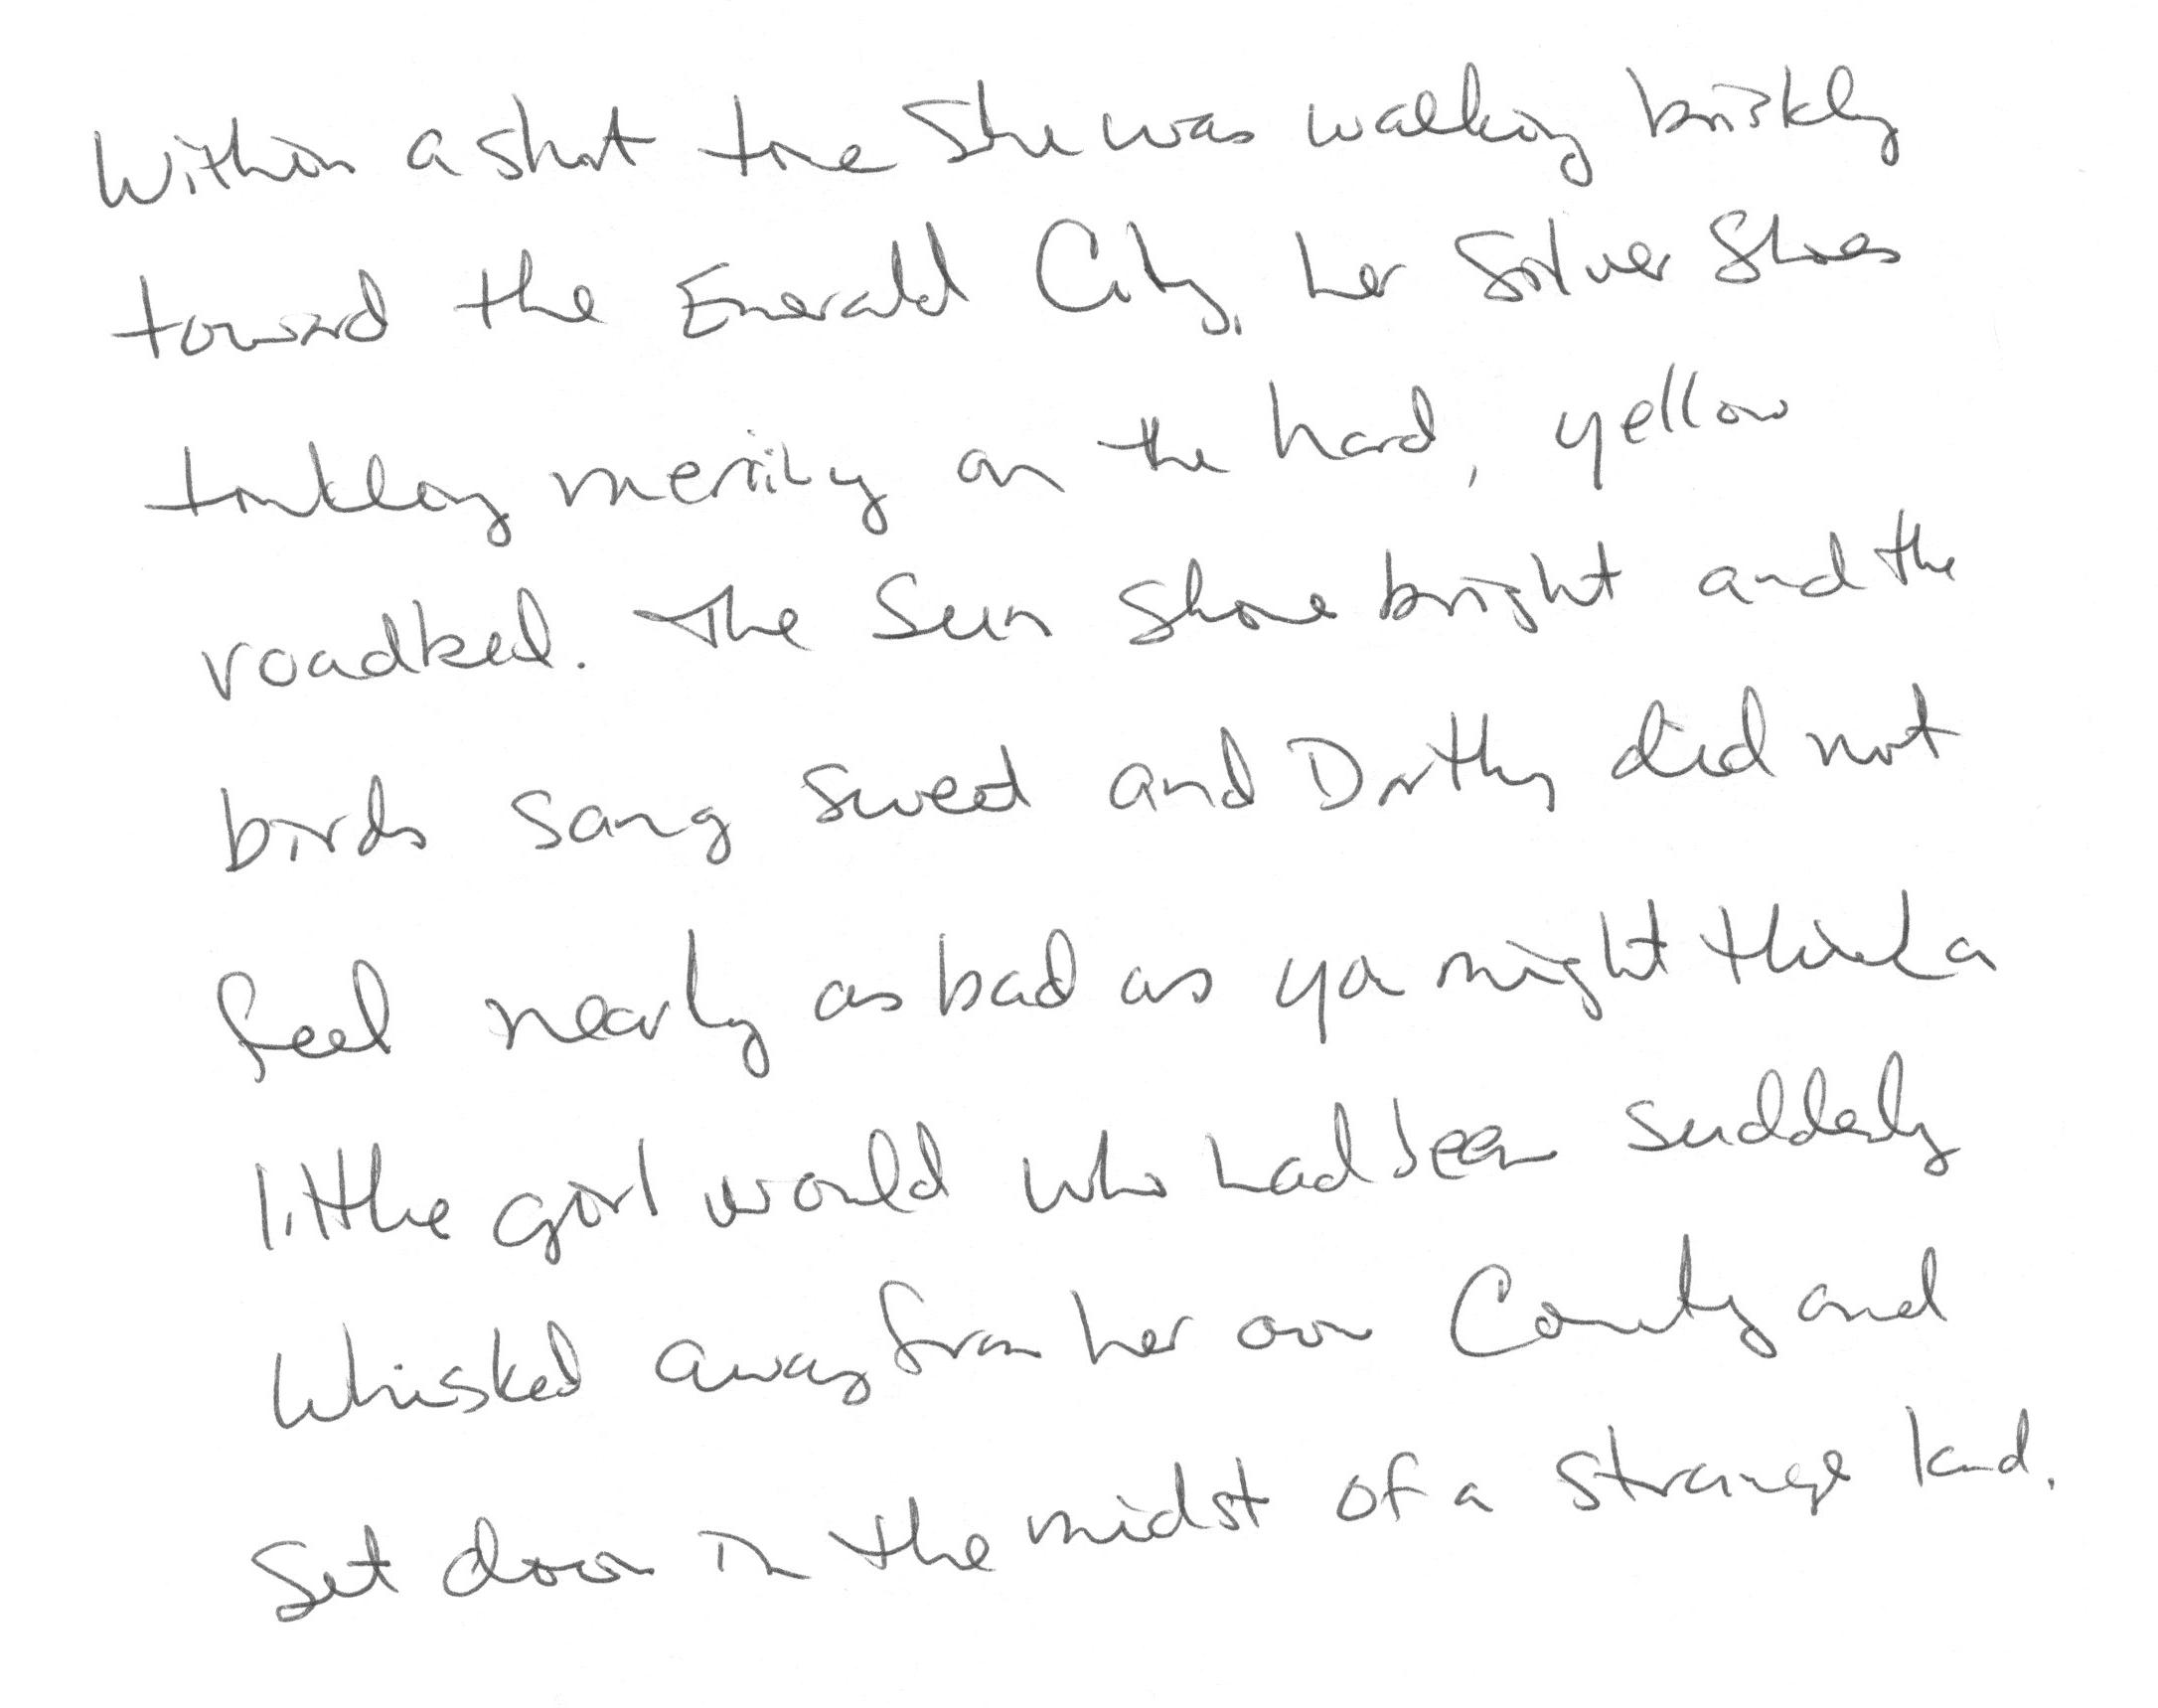 Within a short time She was walking briskly
toward the Emerald City, her Silver Shoes
tinkling merrily on the hard, yellow
roadbed. The Sun Shone bright and the
birds sang sweet and Dorothy did not
feel nearly as bad as you might think a
little girl would who had been suddenly
whisked away from her own Country and
Set down in the midst of a strange land.